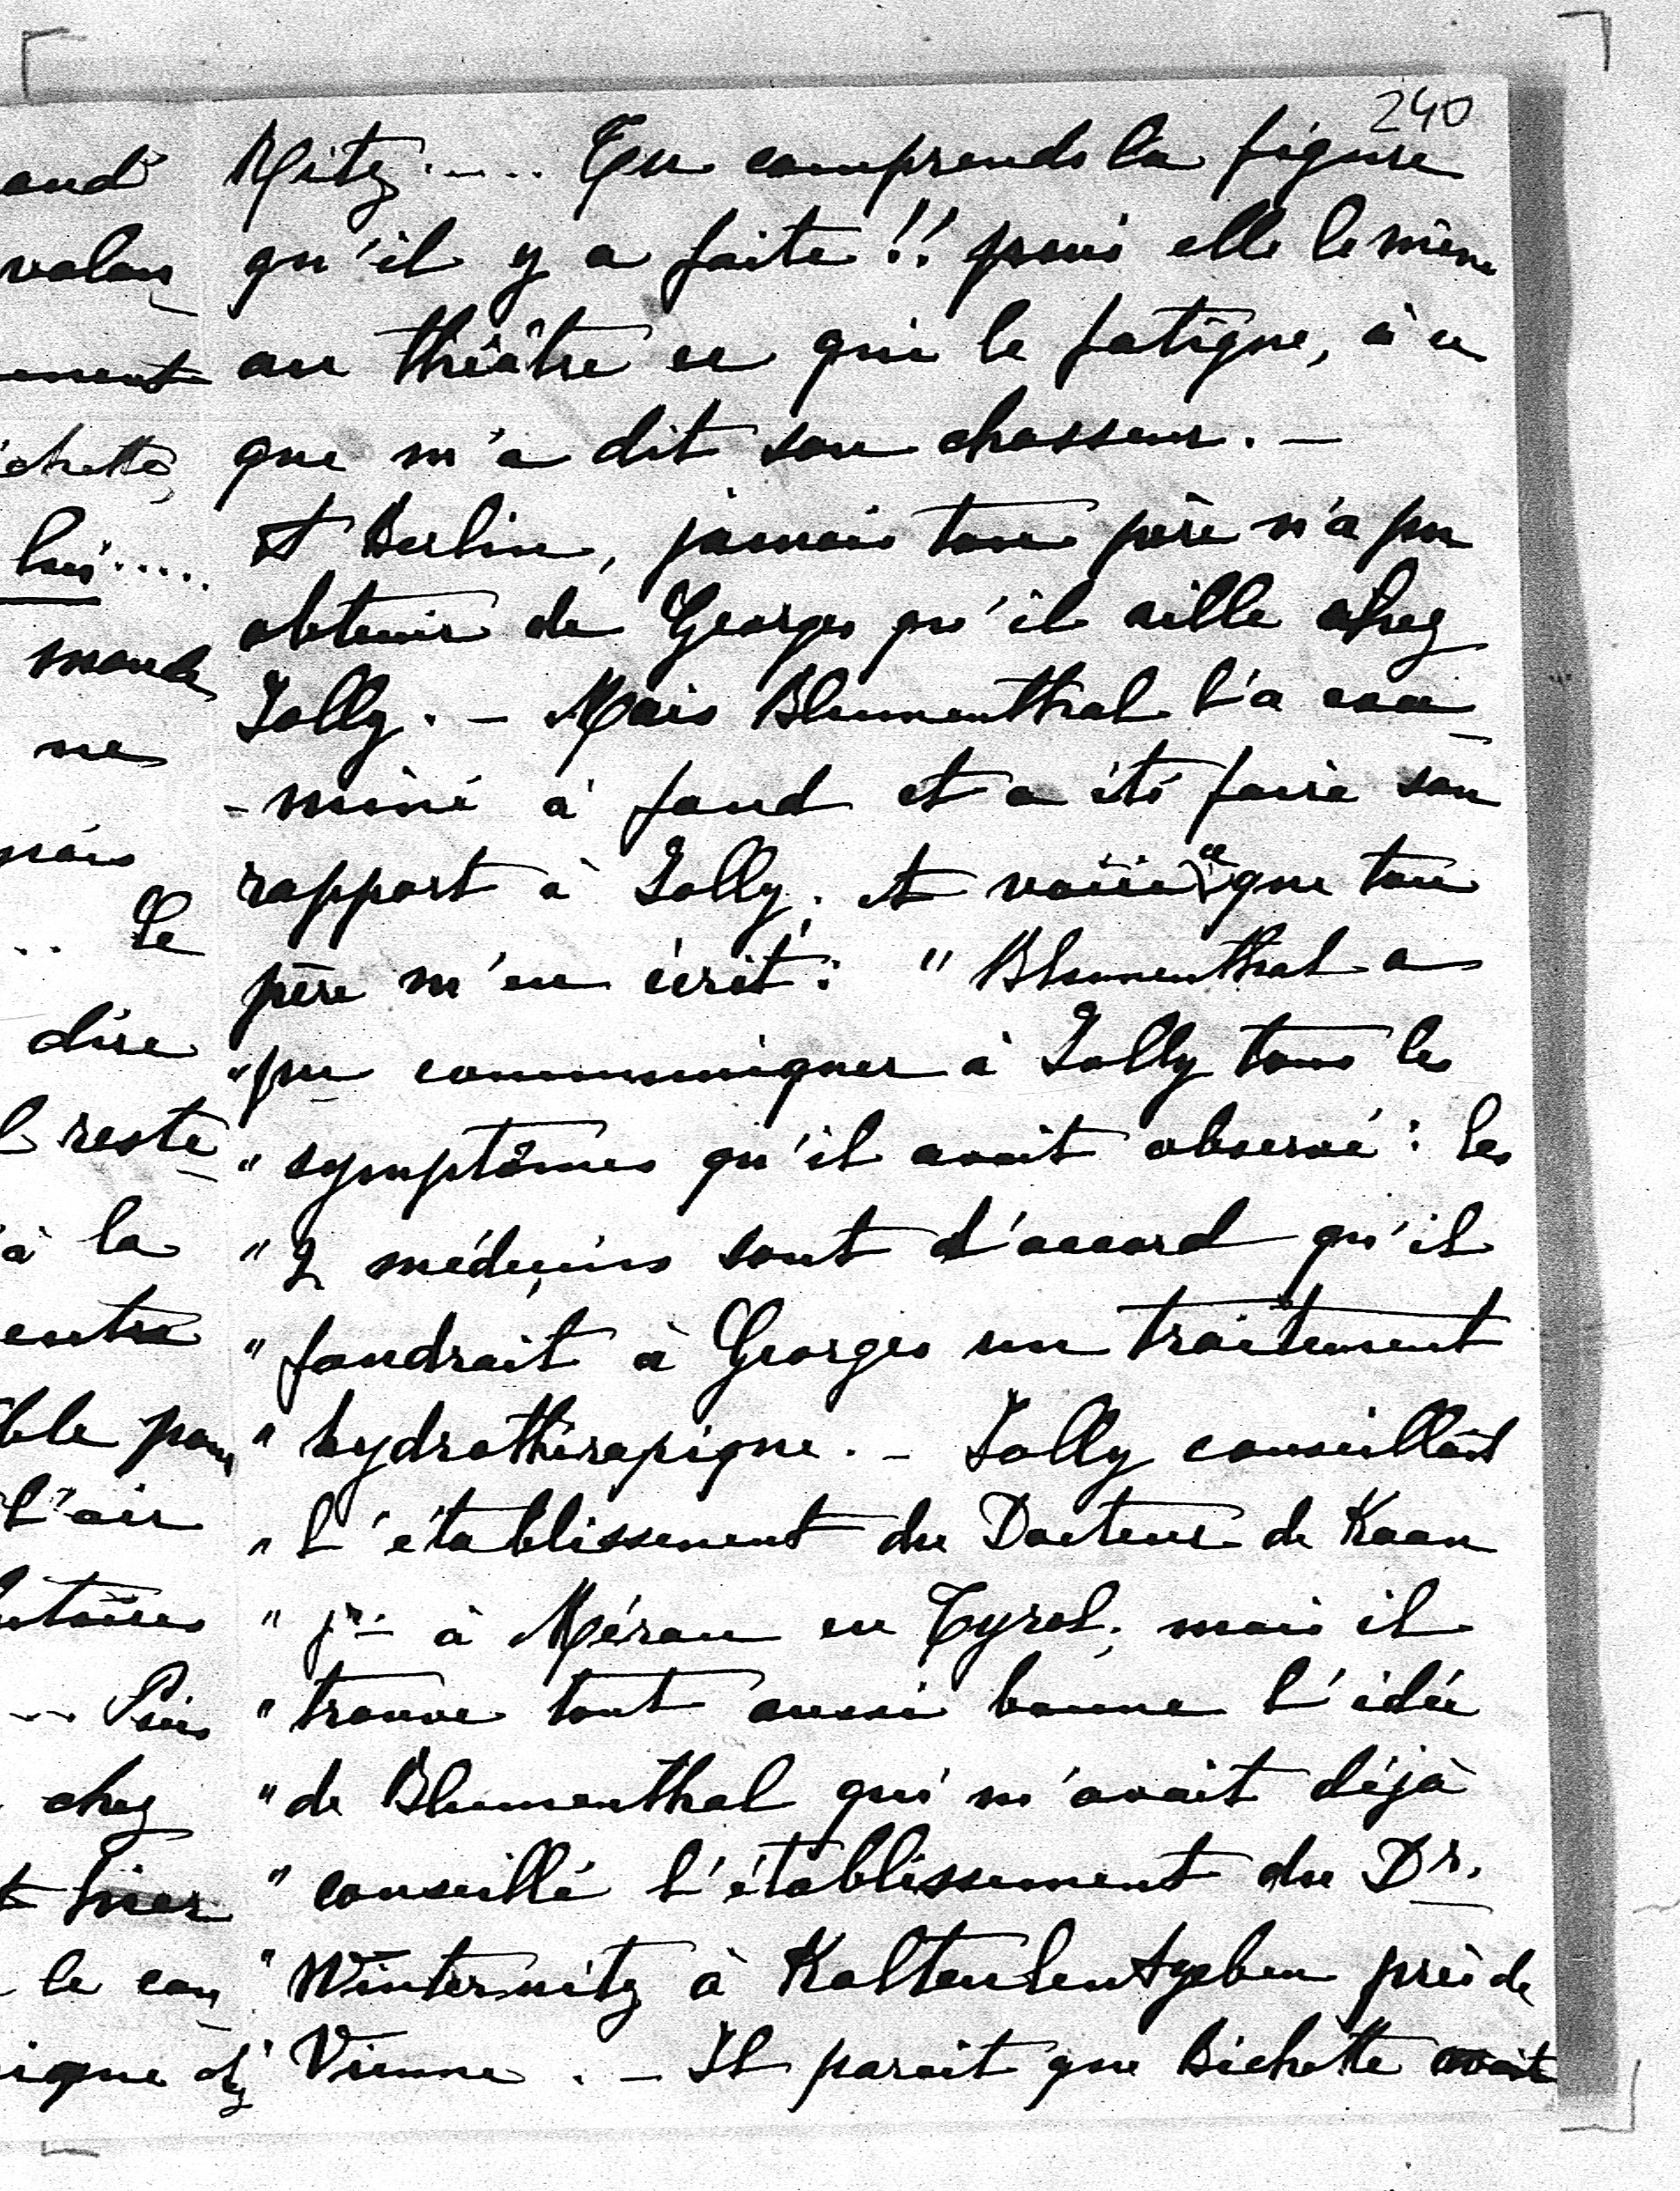 240
Ritz..... Tu comprends la figure
qu'il y a faite!! puis elle le mène
au théâtre ce qui le fatigue, à ce
que m'a dit son chasseur. —
A Berlin, jamais ton père n'a pu
obtenir de Georges qu'il aille chez
Jolly. — Mais Blumenthal l'a exa-
-miné à fond et a été faire son
rapport à Jolly; et voici ce que ton
père m'en écrit: "Blumenthal a
"pu communiquer à Jolly tous les
"symptômes qu'il avait observé: les
"2 médecins sont d'accord qu'il
"faudrait à Georges un traitement
"hydrothérapique. — Jolly conseillait
"l'établissement du Docteur de Kaan
"jr. à Méran en Tyrol; mais il
"trouve tout aussi bonne l'idée
"de Blumenthal qui m'avait déjà
"conseillé l'établissement du Dr.
"Winternitz à Kaltenleutgeben près de
Vienne. — Il parait que Bichette avait
and
valou
ement
chette
lui.....
monde
ne
mais
.. Le
dire
l reste
à la
entre
ble pour
l'air
... Puis
chez
t hier
le cou
ique chz